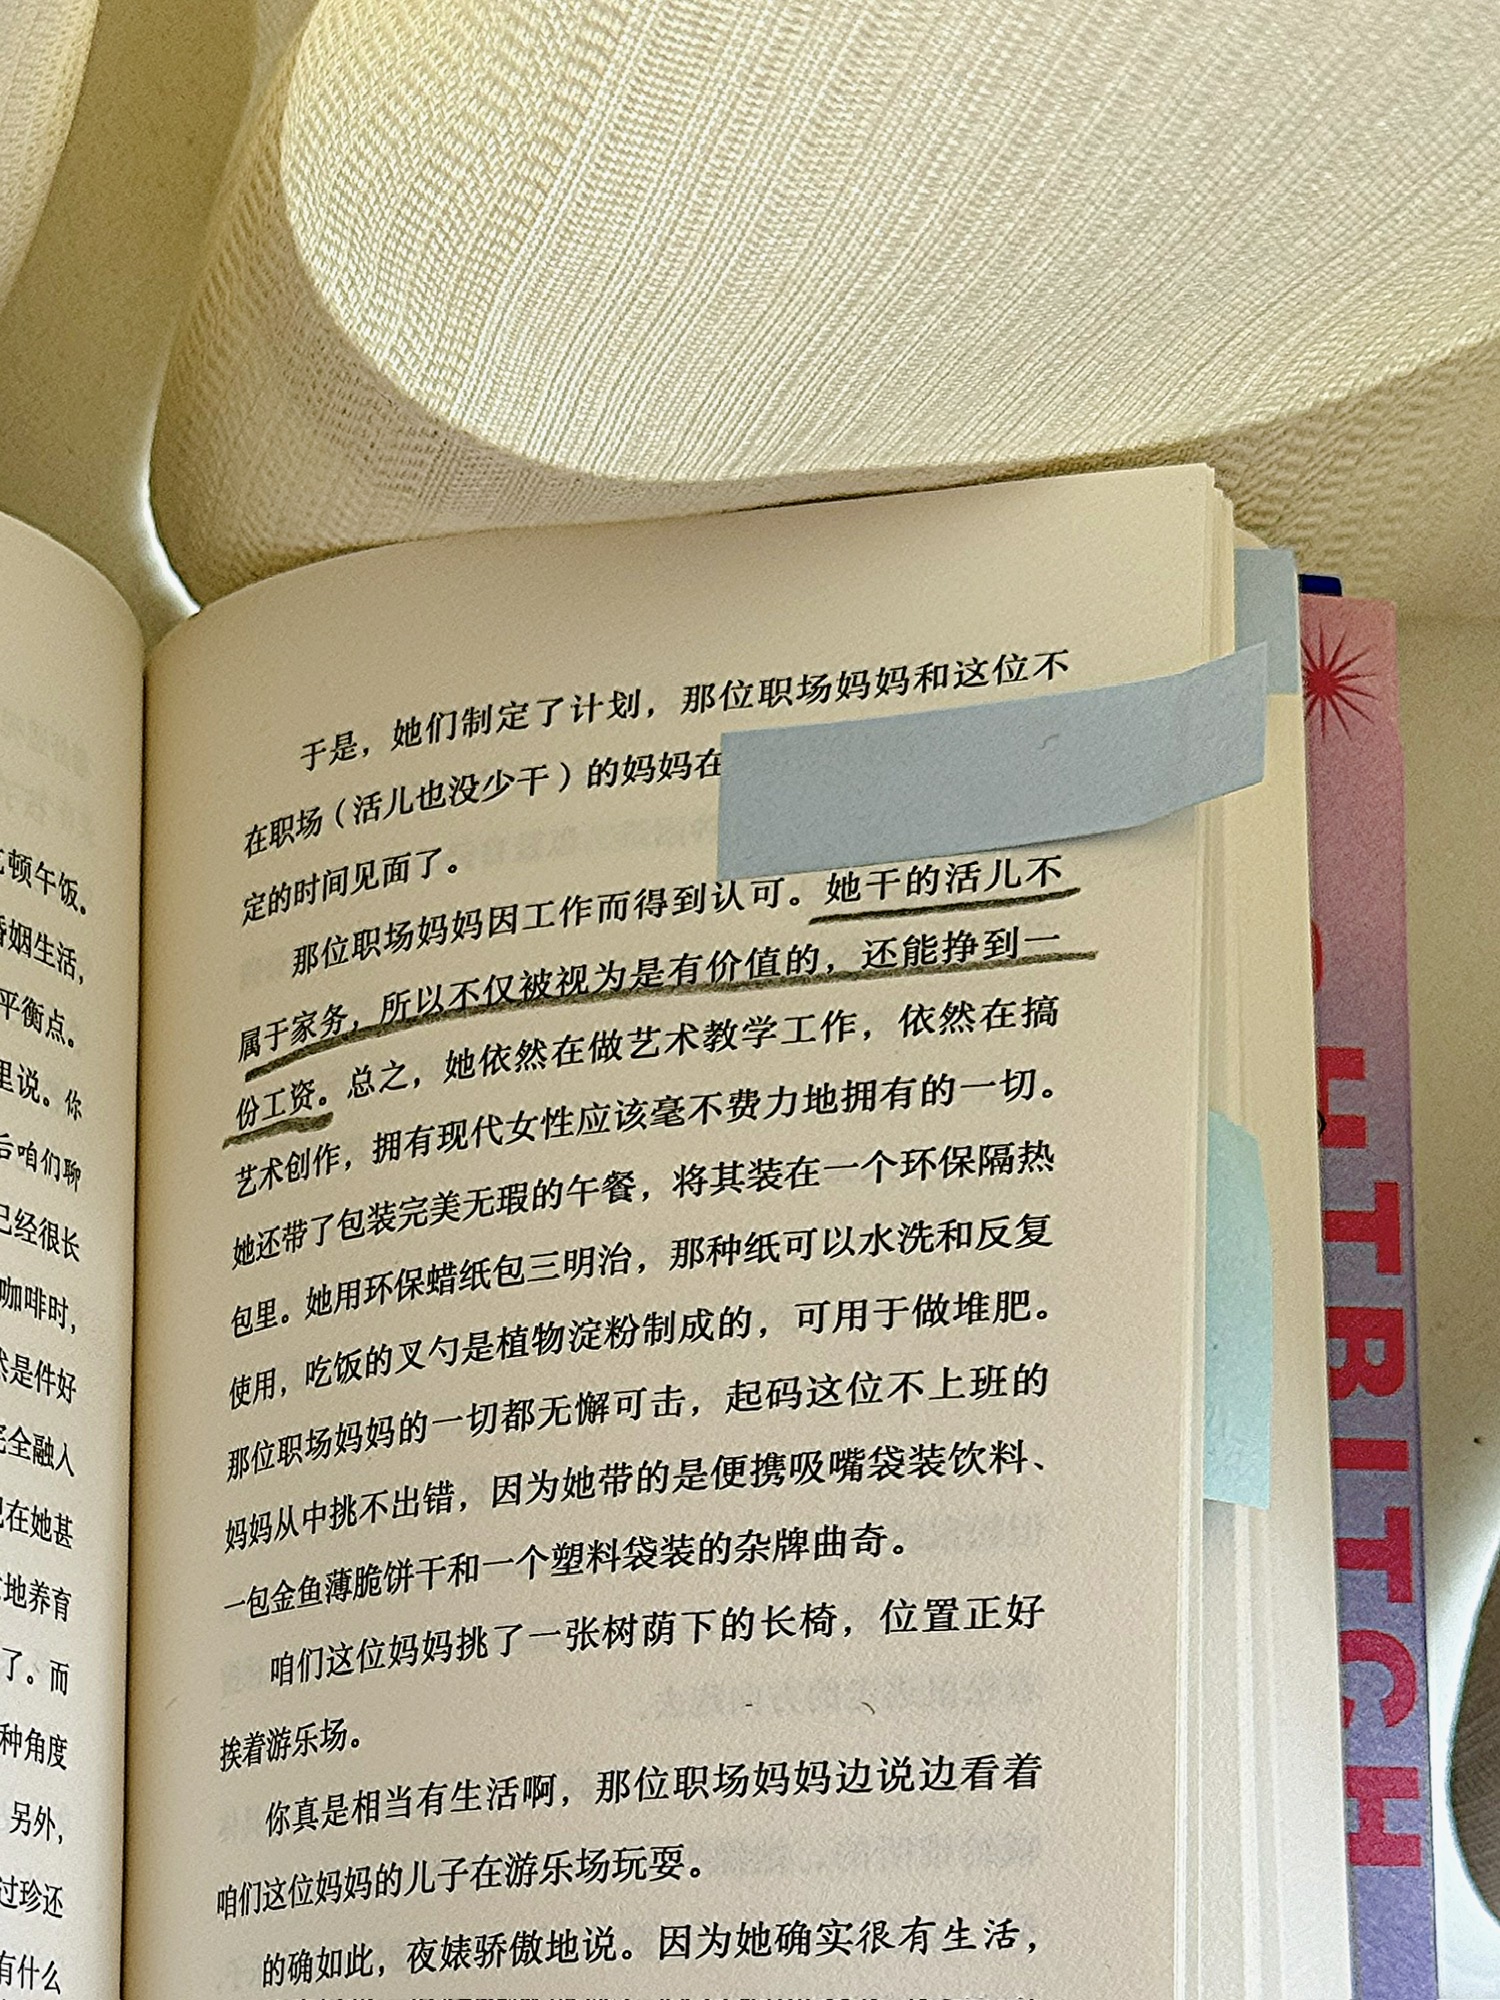 顿午饭。
姻生活，
平衡点。
里说。你
后咱们聊
已经很长
咖啡时，
是件好
完全融入
在她甚
地养育
了。而
种角度
另外，
过珍还
有什么
于是，她们制定了计划，那位职场妈妈和这位不
在职场（活儿也没少干）的妈妈在
定的时间见面了。
那位职场妈妈因工作而得到认可。她干的活儿不
属于家务，所以不仅被视为是有价值的，还能挣到一
份工资。总之，她依然在做艺术教学工作，依然在搞
艺术创作，拥有现代女性应该毫不费力地拥有的一切。
她还带了包装完美无瑕的午餐，将其装在一个环保隔热
包里。她用环保蜡纸包三明治，那种纸可以水洗和反复
使用，吃饭的叉勺是植物淀粉制成的，可用于做堆肥。
那位职场妈妈的一切都无懈可击，起码这位不上班的
妈妈从中挑不出错，因为她带的是便携吸嘴袋装饮料、
一包金鱼薄脆饼干和一个塑料袋装的杂牌曲奇。
咱们这位妈妈挑了一张树荫下的长椅，位置正好
挨着游乐场。
你真是相当有生活啊，那位职场妈妈边说边看着
咱们这位妈妈的儿子在游乐场玩耍。
的确如此，夜婊骄傲地说。因为她确实很有生活，
HTBITCH